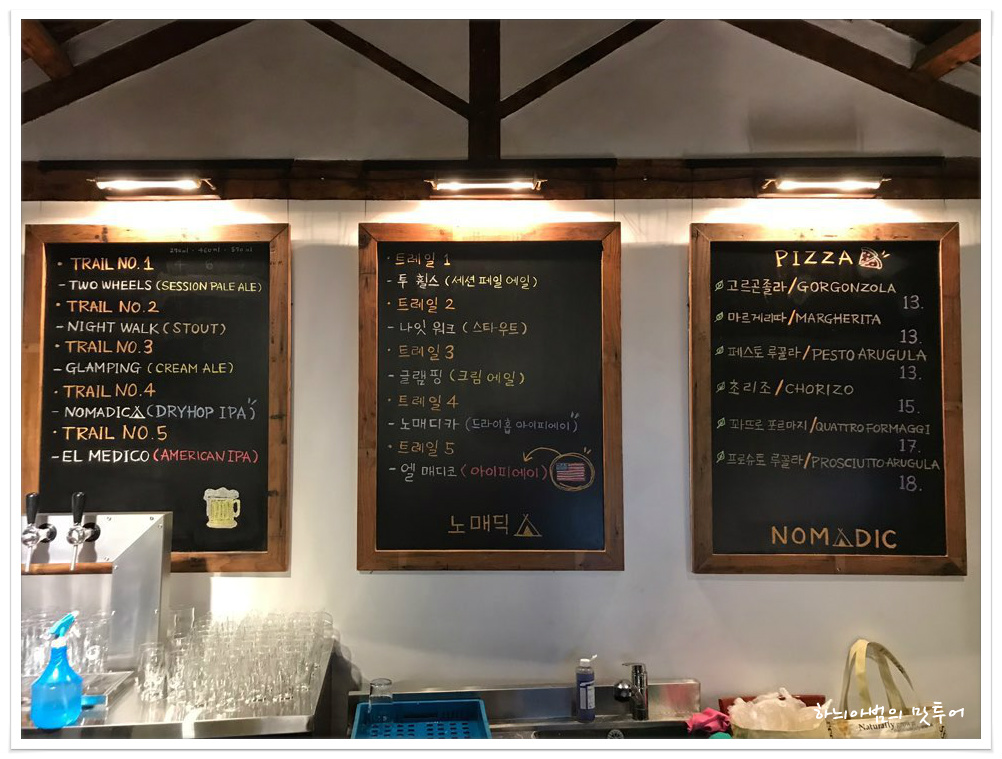 TRAIL NO.1
- TWO WHEELS (SESSION PALE ALE)
TRAIL NO.2
- NIGHT WALK (STOUT)
TRAIL NO.3
- GLAMPING (CREAM ALE)
TRAIL NO.4
- NOMADICA (DRYHOP IPA)
TRAIL NO.5
- EL MEDICO (AMERICAN IPA)
트레일 1
- 투 휠스 (세션 페일 에일)
트레일 2
- 나잇 워크 (스타우트)
트레일 3
- 글램핑 (크림 에일)
트레일 4
- 노매디카 (드라이홉 아이피에이)
트레일 5
- 엘 매디코 (아이피에이)
노매딕
PIZZA
고르곤졸라/GORGONZOLA
13.
마르게리따/MARGHERITA
13.
페스토 루꼴라/PESTO ARUGULA
13.
초리조/CHORIZO
15.
꽈뜨로 포르마지/QUATTRO FORMAGGI
17.
프로슈토 루꼴라/PROSCIUTTO ARUGULA
18.
NOMADIC
Naturally
하늬아범의 맛투어